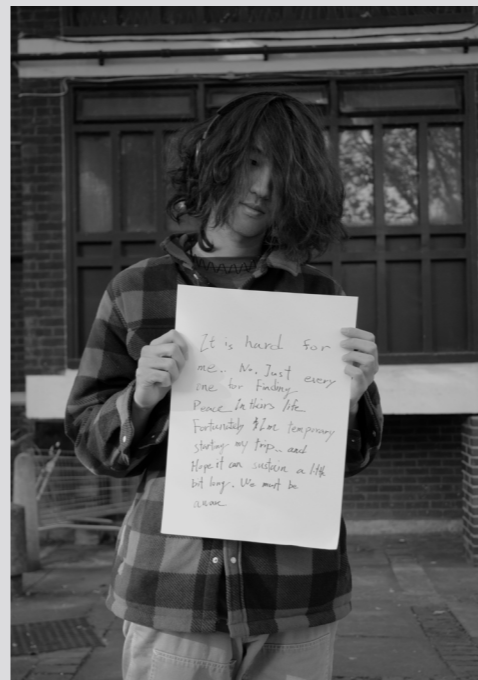 It is hard for
me.. No. Just every
one for Finding
Peace In theirs life
Fortunately I'm temporary
starting my trip.. and
Hope it can sustain a little
bit long. We must be
aware